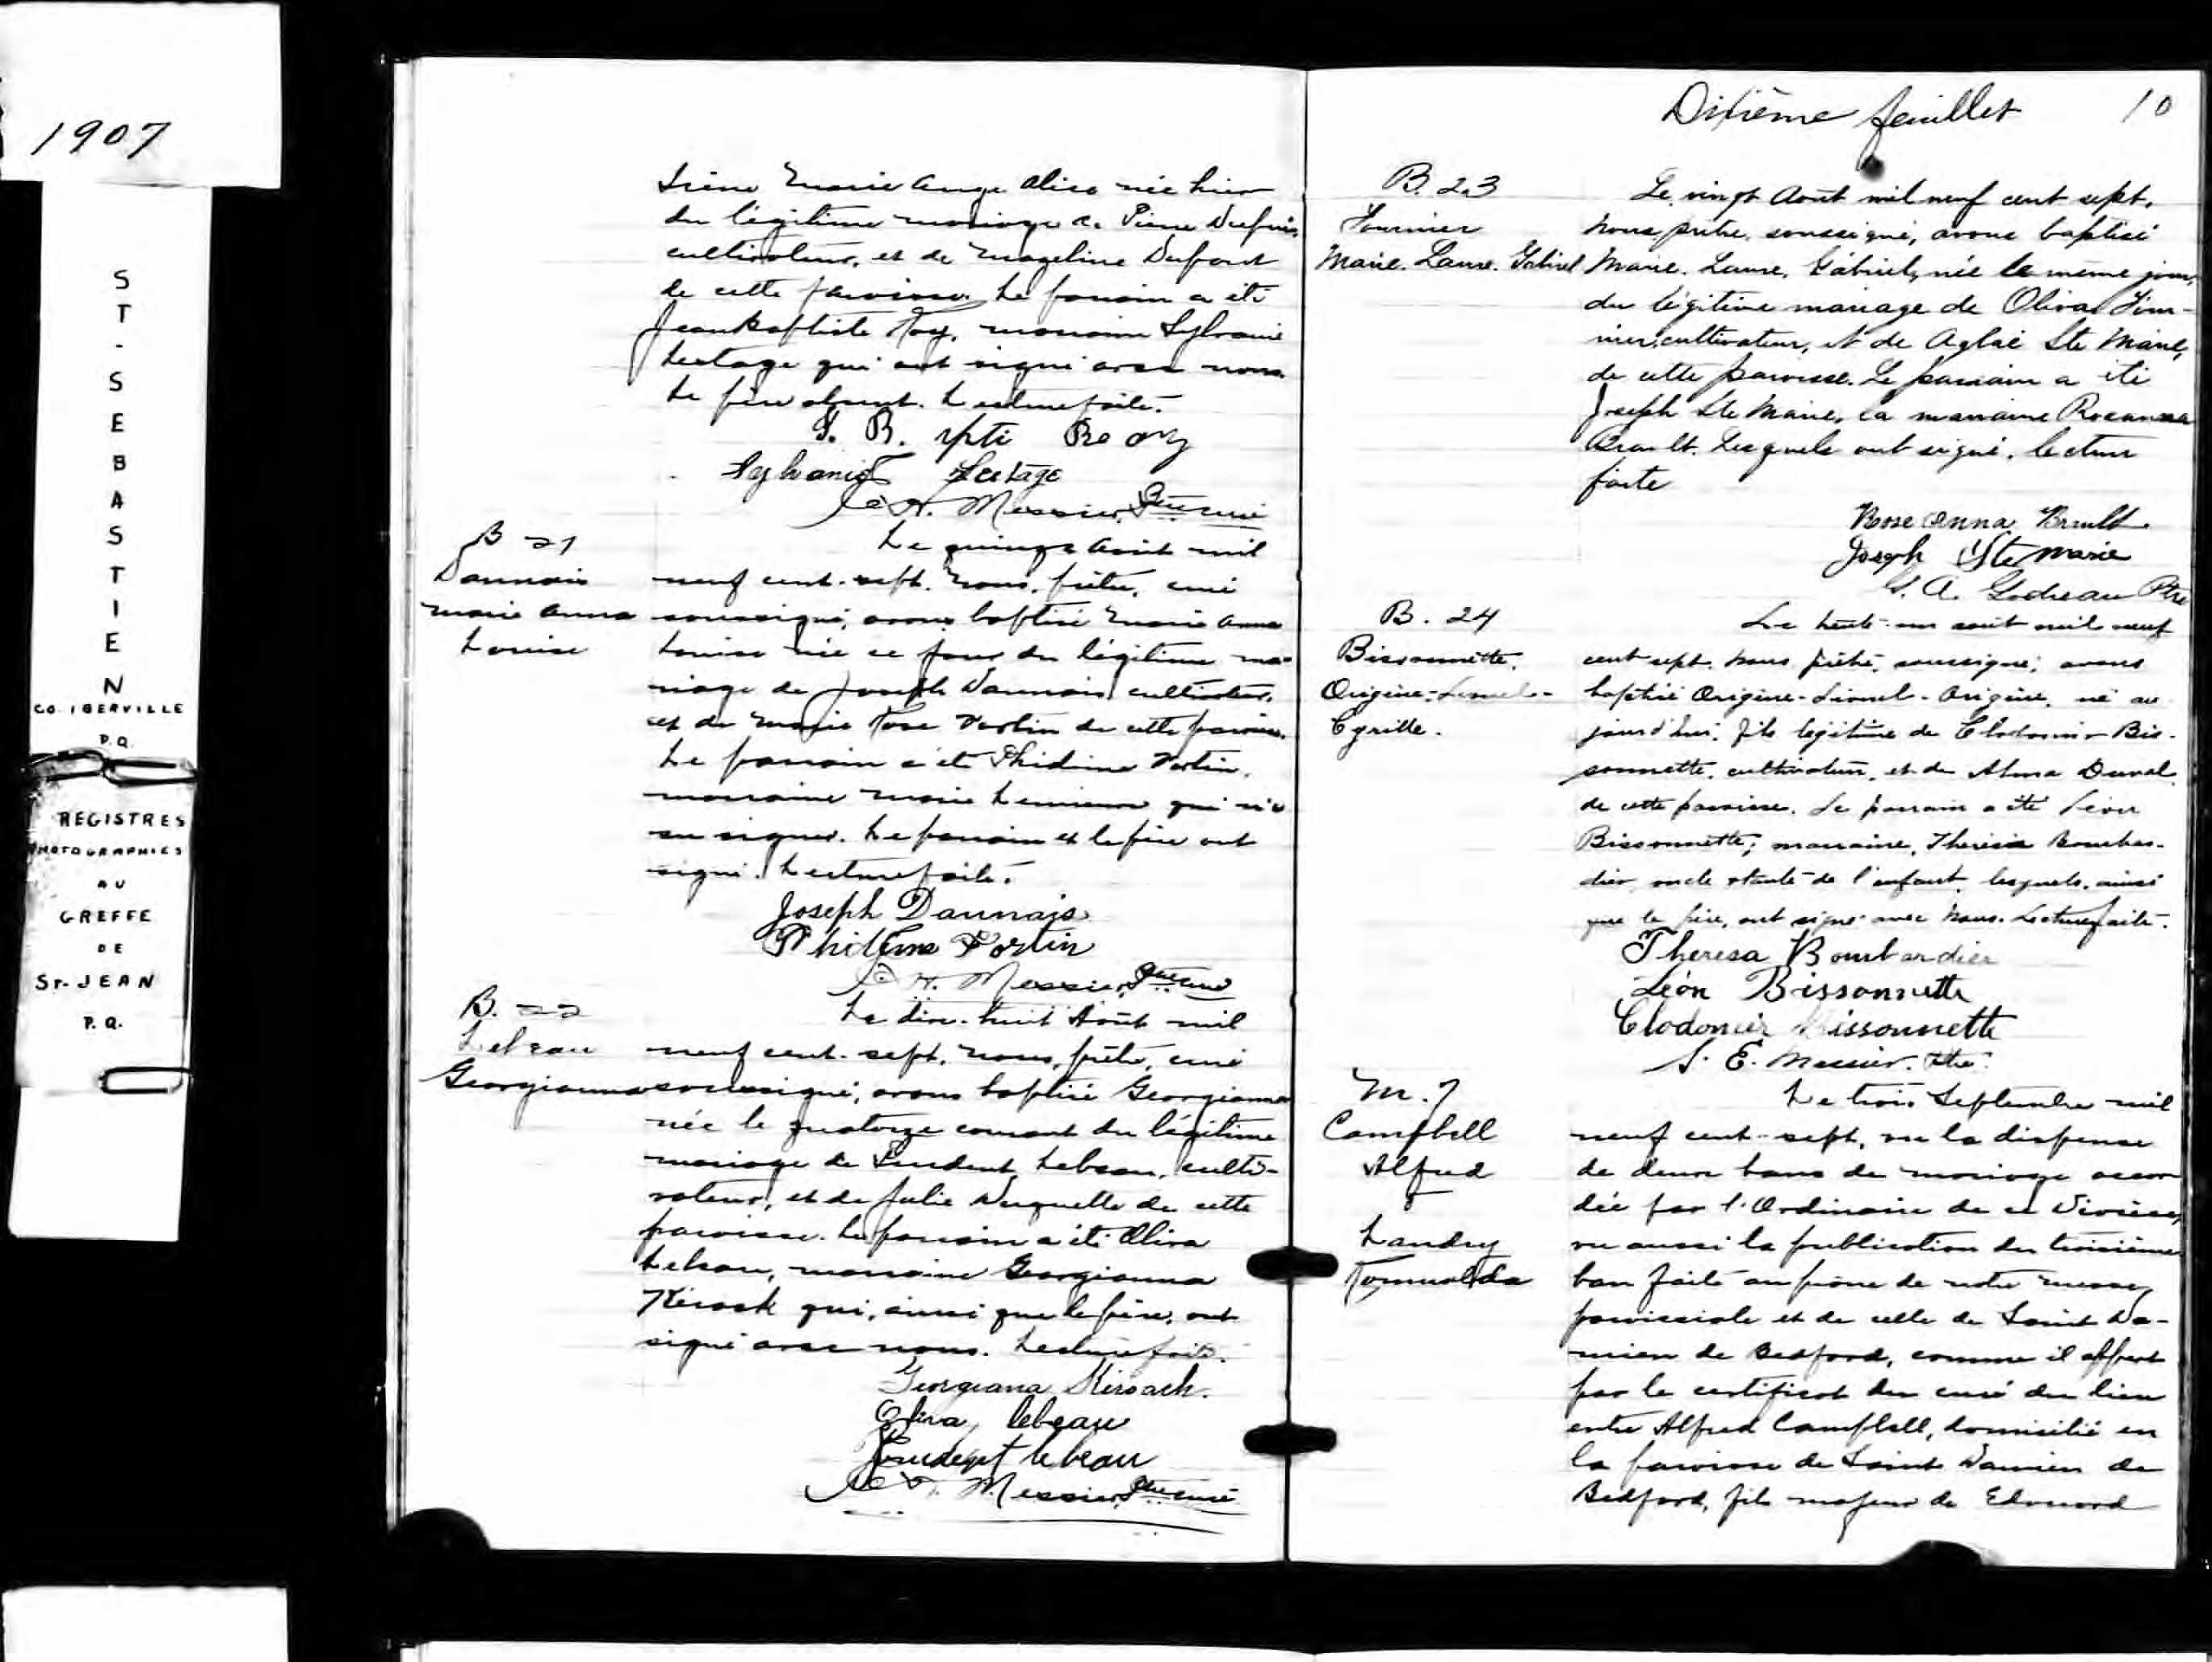 1907
ST-SEBASTIEN
CO. IBERVILLE
P.Q.
REGISTRES
PHOTOGRAPHIES
AU
GREFFE
DE
ST-JEAN
P.Q.
Irène Marie Ange Alice née hier
du légitime mariage de Pierre
cultivateur, et de Mageline Dupont
de cette paroisse. Le parrain a été
Jean Baptiste Roy, marraine Sylvanie
Lestage qui ont signé avec nous.
Le père absent. Lecture faite.
J. B. Roy
Sylvanie Lestage
Messier, Ptre curé
B 21
Daunais
Marie Anna
Louise
Le quinze Août mil
neuf cent-sept. Nous, prêtre, curé
soussigné, avons baptisé Marie Anna
Louise née ce jour du légitime ma-
riage de Joseph Daunais cultivateur,
et de Marie Rose Fortin de cette paroisse.
Le parrain a été Phidime Fortin,
marraine Marie qui n'a
su signer. Le parrain et le père ont
signé. Lecture faite.
Joseph Daunais
Phidime Fortin
Messier, Ptre curé
B. 22
Lebeau
Georgianna
Le dix-huit Août mil
neuf cent-sept, nous, prêtre, curé
soussigné, avons baptisé Georgianna
née le quatorze courant du légitime
mariage de Prudent Lebeau, culti-
vateur, et de Julie de cette
paroisse. Le parrain a été Oliva
Lebeau, marraine Georgianna
qui, ainsi que le père, ont
signé avec nous. Lecture faite.
Georgeana
lebeau
Prudent lebeau
Messier, Ptre curé
Dixième feuillet 10
B. 23
Fournier
Marie. Laure. Gabriel
Le vingt Août mil neuf cent sept.
nous prêtre, soussigné, avons baptisé
Marie. Laure. Gabriel, née le même jour,
du légitime mariage de Oliva Four-
nier, cultivateur, et de Aglaé Ste Marie,
de cette paroisse. Le parrain a été
Joseph Ste Marie, la marraine Roseanna
Brault. Lesquels ont signé. lecture
faite
Rose Anna Brault
Joseph Ste Marie
A. Ptre
B. 24
Bissonnette.
Origène-Lionel-
Cyrille.
Le trente-un août mil neuf
cent sept. Nous prêtre, soussigné, avons
baptisé Origène-Lionel-Origène, né au
jourd'hui, fils légitime de Clodomir Bis-
sonnette, cultivateur, et de Alma Duval
de cette paroisse. Le parrain a été Léon
Bissonnette; marraine, Theresa Bombar-
dier, oncle et tante de l'enfant, lesquels, ainsi
que le père, ont signé avec Nous. Lecture faite.
Theresa Bombardier
Léon Bissonnette
Clodomir Bissonnette
S. E. Messier. Ptre.
M. 7
Campbell
Alfred
&
Landry
Romualda
Le trois Septembre mil
neuf cent-sept, vu la dispense
de deux bans de mariage accor
dée par l'Ordinaire de ce Diocèse,
vu aussi la publication du troisième
ban faite au prône de notre messe
paroissiale et de celle de Saint Da-
mien de Bedford, comme il appert
par le certificat du curé du lieu
entre Alfred Campbell, domicilié en
la paroisse de Saint Damien de
Bedford, fils majeur de Edouard